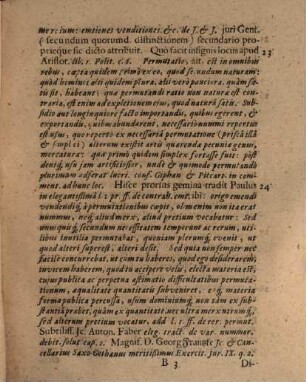 mercium: emtiones venditiones &c. de J. & J. juri Gent.
(secundum quorumd. distinctionem) secundario pro-
prieque sic dicto attribuit. Quo facit insignis locus apud 23
Aristot. lib. 1. Polit. c. 6. Permutatio, ait, est in omnibus
rebus, cæpta quidem primò ex eo, quod secundum naturam:
quod homines alii quidem plura, alii verò pauciora, quàm sa-
tis sit, habeant: qua permutandi ratio non natura est con-
traria, est enim ad expletionem ejus, quod natura satis. Sub-
sidio aut longinquiore facto importandis, quibus egerent, &
exportandis, quibus abundarent, necessariò nummi repertus
est usus, quo reperto ex necessariâ permutatione (priscâ illâ
& simplici) alterum exstitit artis quærendæ pecuniæ genus,
mercatura: quæ primò quidem simplex fortasse fuit: post
deniq; usu jam artificiosior, unde & quomodo permutandi
plurimùm adserat lucri. conf. Giphan & Piccart. in com-
ment. ad hunc loc. Hisce prorsus gemina tradit Paulus 24
in elegantissimâ l. 1. pr. ff. de contrah. emt. ibi: origo emendi
vendendiq; à permutationibus cœpit, olim enim non ita erat
nummus, neq; aliud merx, aliud pretium vocabatur: Sed
unusquisq; secundum necessitatem temporum ac rerum, uti-
libus inutilia permutabat, quoniam plerumq; evenit, ut
quod alteri superest, alteri desit. Sed quia non semper nec
facilè concurrebat, ut cum tu haberes, quod ego desiderarem,
invicem haberem, quod tu accipere velis, electa materia est,
cujus publica ac perpetua æstimatio difficultatibus permuta-
tionum, æqualitate quantitatis subveniret, eaq; materia
formâ publicâ percussa, usum dominiumq; non tàm ex substan-
tiâ præbet, quàm ex quantitate, nec ultra merx utrumq;,
sed alterum pretium vocatur. add. l. 1. ff. de rer. permut.
Subtiliss. Jc. Anton. Faber eleg. tract. de var. nummar.
debit. solut cap. 2. Magnif. D. Georg Frantzke Jc & Can-
cellarius Saxo-Gothanus meritissimus Exercit. jur. IX. q. 2.
B 3 Di-